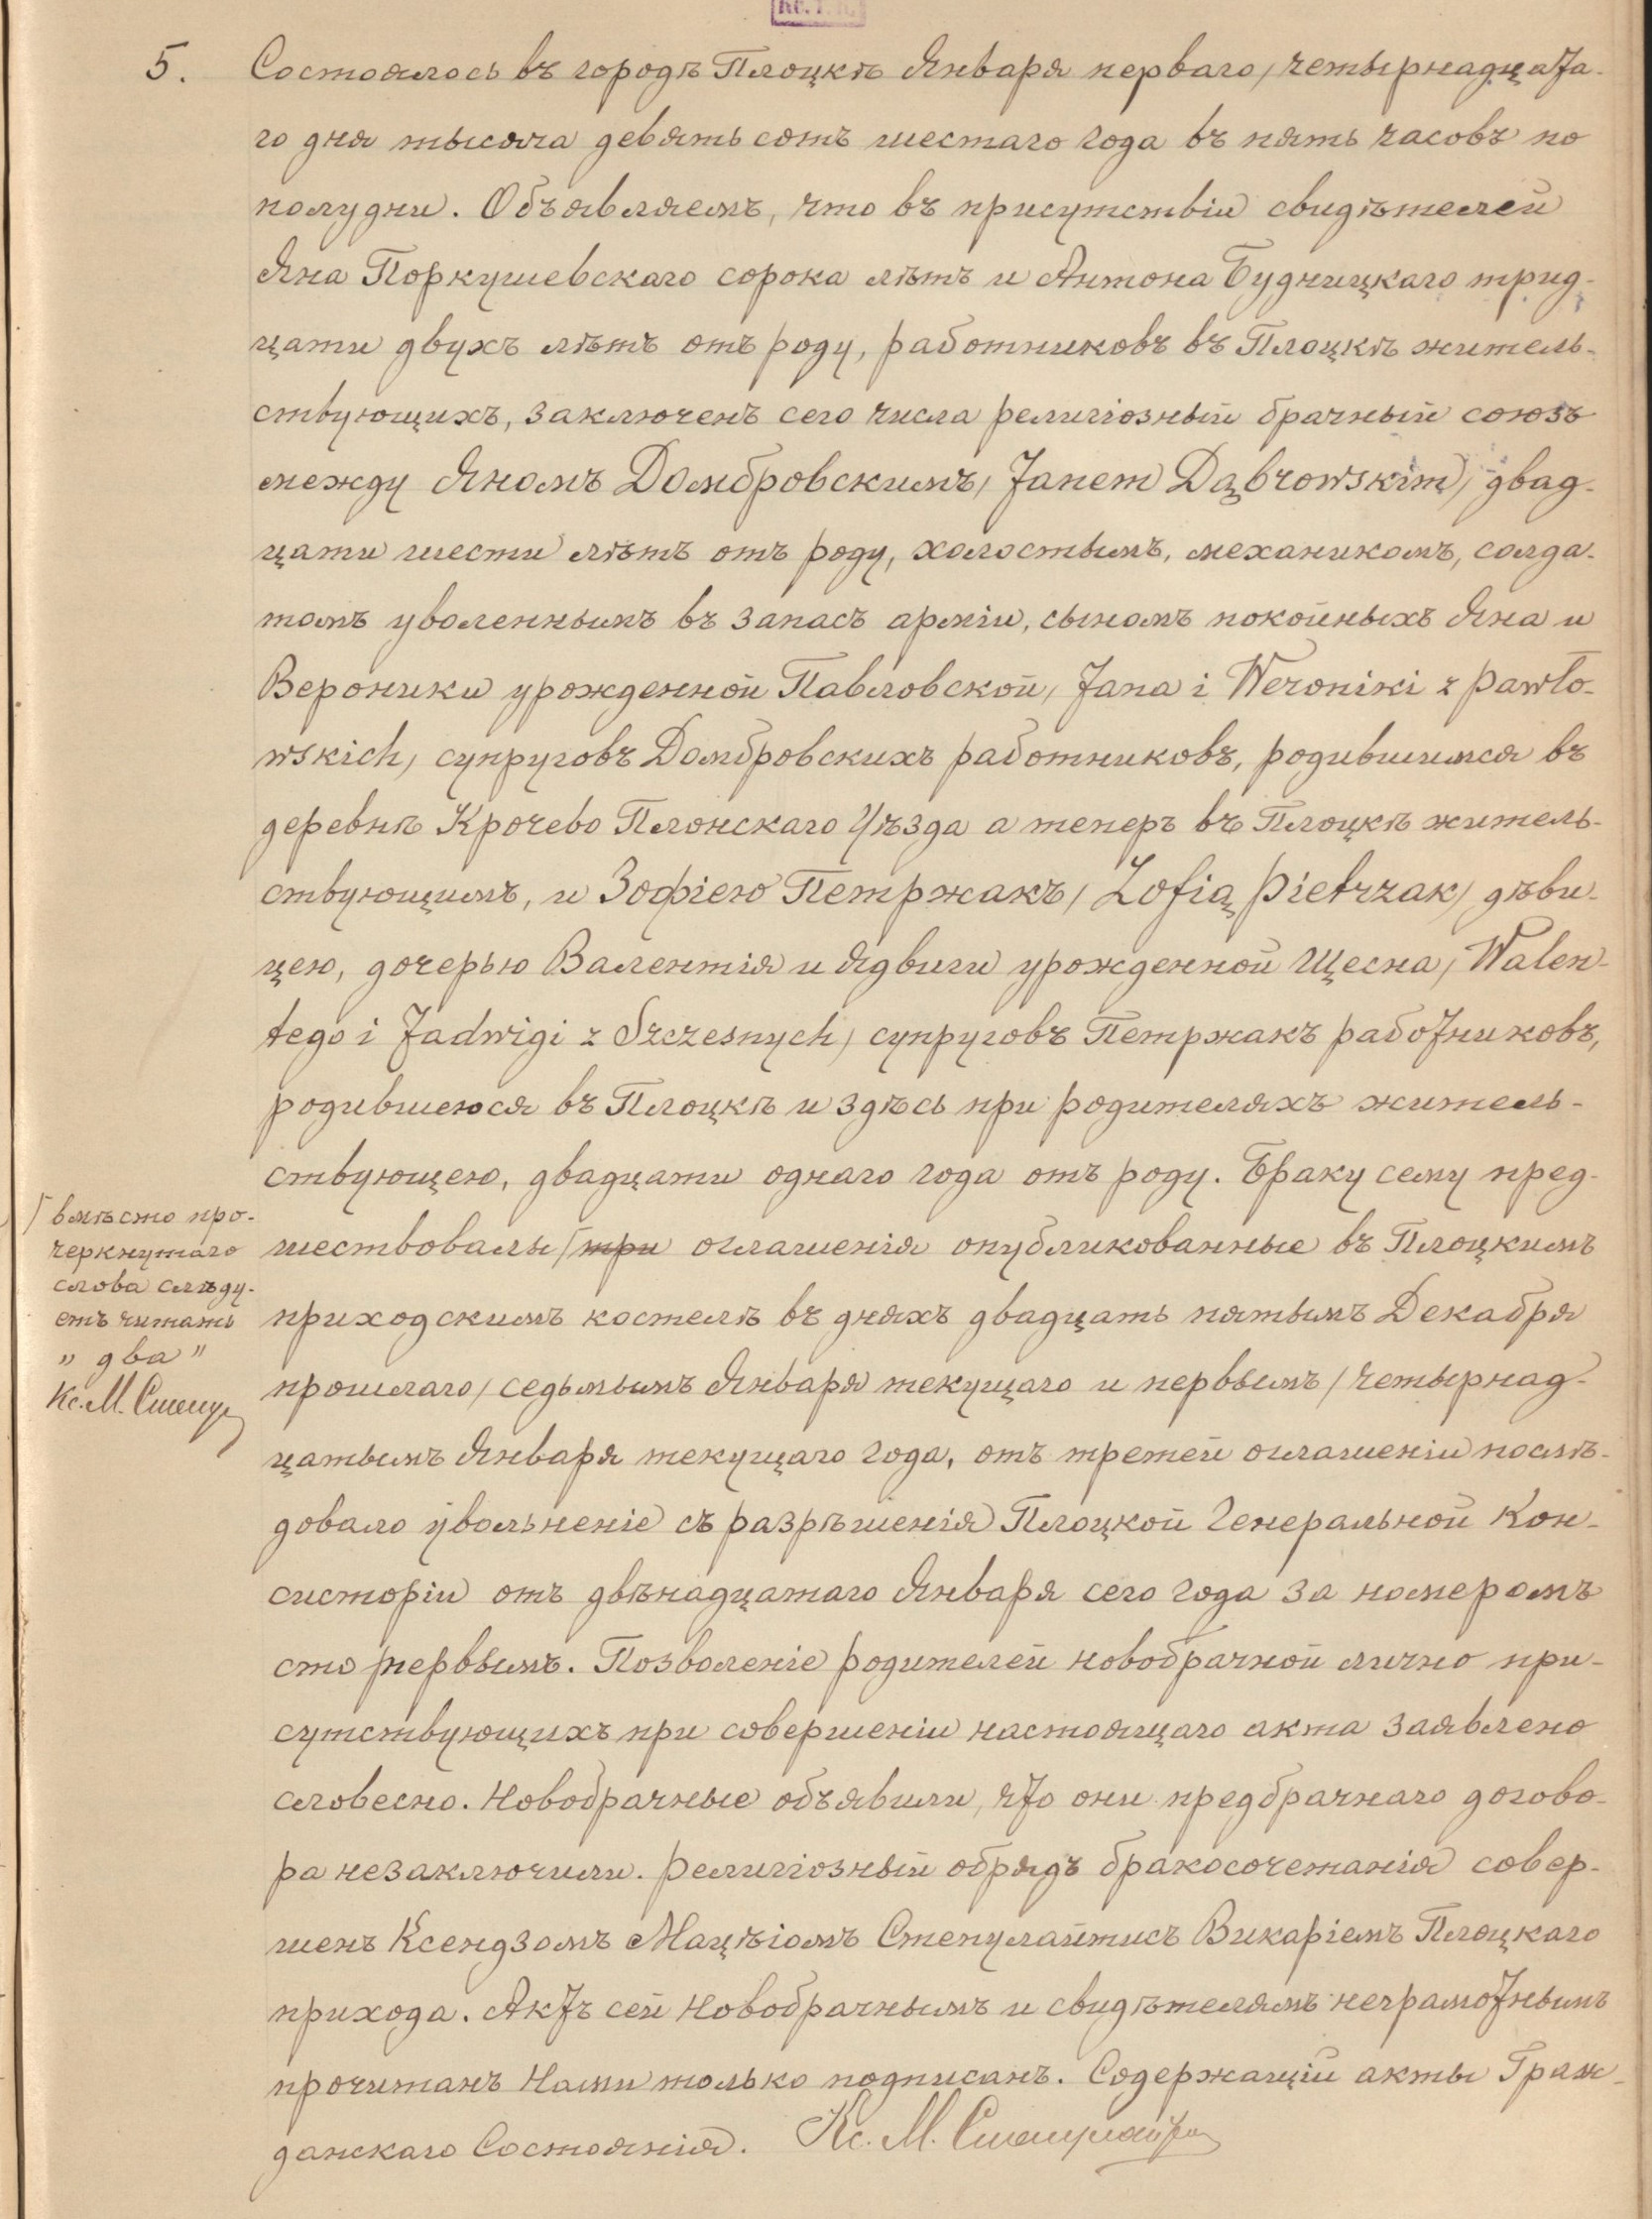 Кс. М.
5. Состоялось въ городѣ Плоцкѣ Января перваго / четырнадцата-
го дня тысяча девятьсотъ шестаго года въ пять часовъ по
полудни. Объявляемъ, что въ присутствіи свидѣтелей
Яна Поркушевскаго сорока лѣтъ и Антона Будницкаго трид-
цати двухъ лѣтъ отъ роду, работниковъ въ Плоцкѣ житель-
ствующихъ, заключенъ сего числа религіозный брачный союзъ
между Яномъ Домбровскимъ / Janem Dąbrowskim / двад-
цати шести лѣтъ отъ роду, холостымъ, механикомъ, солда-
томъ уволеннымъ въ запасъ арміи, сыномъ покойныхъ Яна и
Вероники урожденной Павловской / Jana i Weroniki z Pawło-
wskich / супруговъ Домбровскихъ работниковъ, родившимся въ
деревнѣ Крочево Плонскаго Уѣзда а теперъ въ Плоцкѣ житель-
ствующимъ, и Зофіею Петржакъ / Zofią Pietrzak / дѣви-
цею, дочерью Валентія и Ядвиги урожденной Щесна / Walen-
tego i Jadwigi z Szczesnych / супруговъ Петржакъ работниковъ,
родившеюся въ Плоцкѣ и здѣсь при родителяхъ житель-
ствующею, двадцати однаго года отъ роду. Браку сему пред-
шествовали / три оглашенія опубликованные въ Плоцкимъ
приходскимъ костелѣ въ дняхъ двадцать пятымъ Декабря
прошлаго / седьмымъ Января текущаго и первымъ / четырнад-
цатымъ Января текущаго года, отъ третей оглашеніи послѣ-
довало увольненіе съ разрѣшенія Плоцкой Генеральной Кон-
систоріи отъ двѣнадцатаго Января сего года за номеромъ
сто первымъ. Позволеніе родителей новобрачной лично при-
сутствующихъ при совершеніи настоящаго акта заявлено
словесно. Новобрачные объявили, что они предбрачнаго догово-
ра незаключили. Религіозный обрядъ бракосочетанія совер-
шенъ Ксендзомъ Мацѣіомъ Степулайтисъ Викаріемъ Плоцкаго
прихода. Актъ сей Новобрачнымъ и свидѣтелямъ неграмотнымъ
прочитанъ Нами только подписанъ. Содержащій акты Граж-
данскаго Состоянія. Кс. М. Степулайтис
/ вмѣсто про-
черкнутаго
слова слѣду-
етъ читать
" два "
Кс. М. Степул